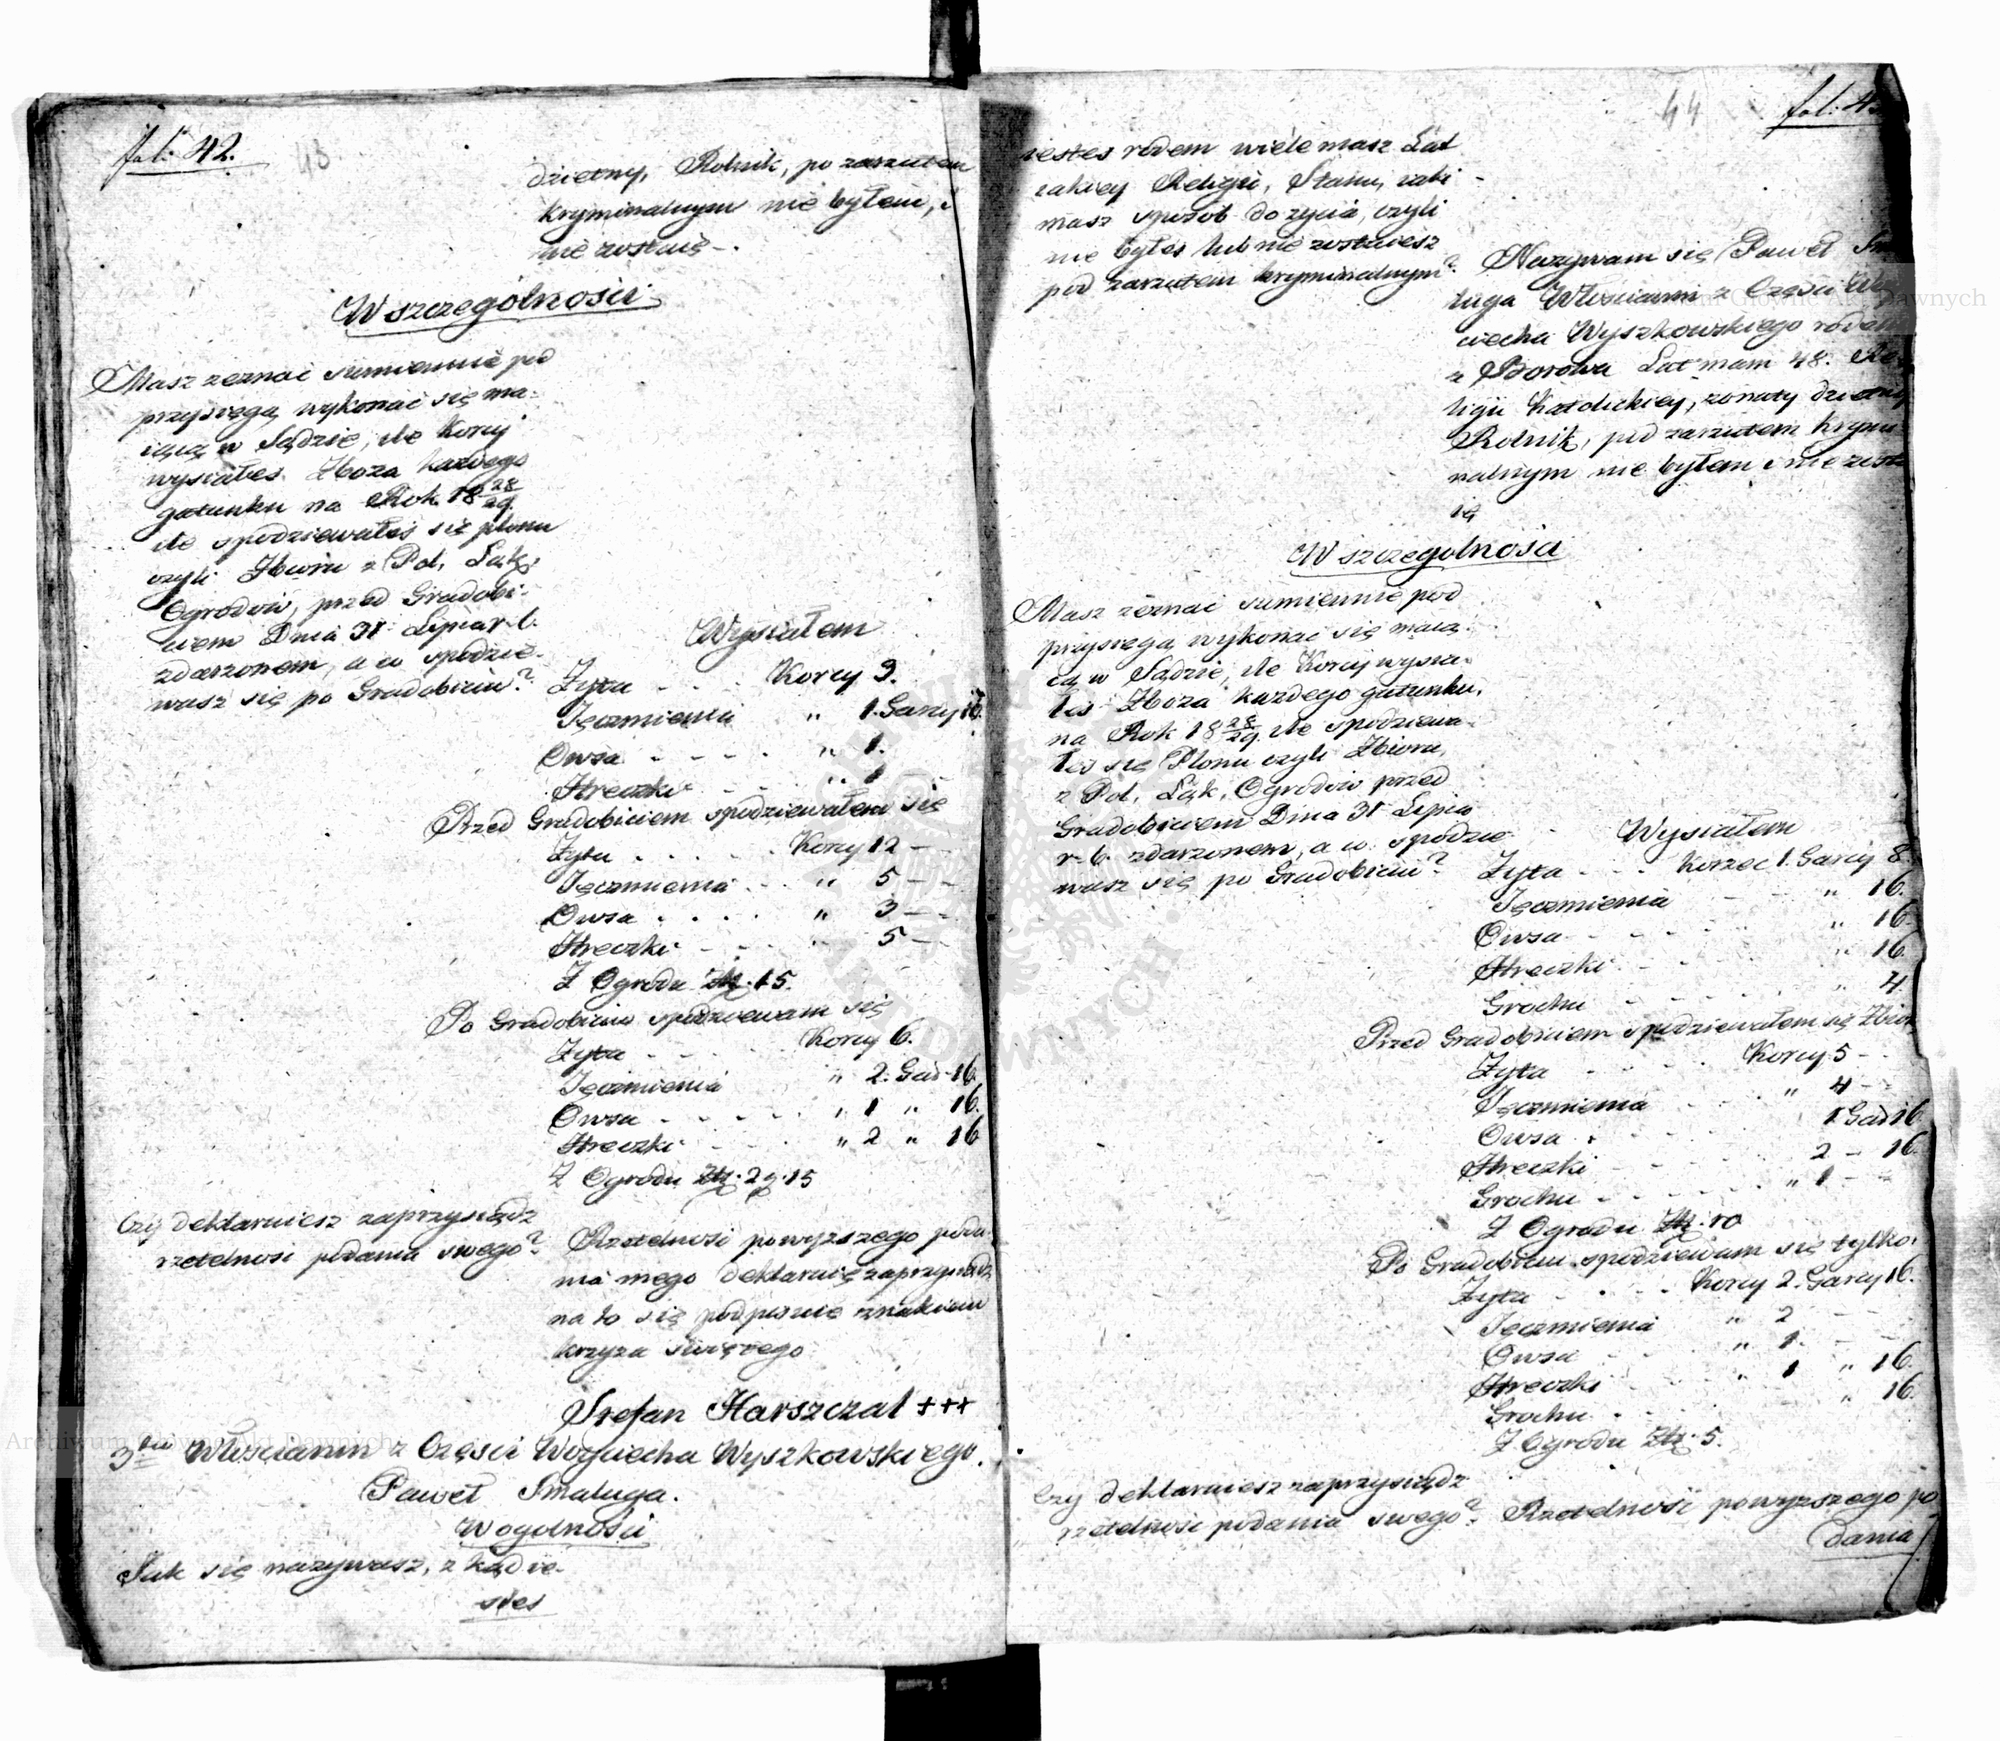 fol: 42.
43
dzietny, Rolnik, po zarzutem
kryminalnym nie byłem, i
nie zostaię -.
W szczegolnosci
Masz zeznać sumiennie pod
przysięgą wykonać się ma-
iącą w Sądzie, ile Korcy
wysiałeś Zboza kazdego
gatunku na Rok 18 28/29.
ile spodziewałeś się plonu
czyli Zbioru z Pol, Łąk,
Ogrodów, przed Gradobi-
ciem Dnia 31 Lipca r. b.
zdarzonem, a co spodzie-
wasz się po Gradobiciu?
Wysiałem
Zyta - - - Korcy 3.
Jęczmienia " 1. Garcy 16.
Owsa - - - - " 1.
Hreczki - - - " 1 -
Przed Gradobiciem spodziewałem się
Zyta - - - - - Korcy 12 -
Jęczmienia - - " 5 - -
Owsa - - - - " 3 - -
Hreczki - - - " 5 -
Z Ogrodu Zł. 15.
Po Gradobiciu spodziewam się
Zyta - - - Korcy 6.
Jęczmienia " 2. Gar. 16.
Owsa - - - - - " 1 " 16.
Hreczki - - - " 2 " 16
Z Ogrodu Zł. 2 g. 15
Czy deklaruiesz zaprzysiądz
rzetelnosć podania swego?
Rzetelnosć powyzszego poda-
nia mego deklaruię zaprzysiądz
na to się podpisuię znakiem
krzyza swiętego
Stefan Harszczal +++
3tio Włoscianin z Częsci Woyciecha Wyszkowskiego.
Paweł Smaluga.
W ogolnosci
Jak się nazywasz, z kąd ie-
steś
44
fol: 4
iesteś rodem wiele masz Lat
iakiey Religii, Stanu, iaki -
masz sposob do zycia, czyli
nie byłeś lub nie zostaiesz
pod zarzutem kryminalnym?
Nazywam się Paweł Sma
luga Włoscianin z Częsci Woy
ciecha Wyszkowskiego rodem
z Borowa Lat mam 48. Re
ligii Katolickiey, zonaty dzietny
Rolnik, pod zarzutem krymi
nalnym nie byłem i nie zosta
ię
W szczegolnosci
Masz zeznać sumiennie pod
przysięgą wykonać się maią-
cą w Sądzie, ile Korcy wysia-
łeś Zboza kazdego gatunku,
na Rok 18 28/29. ile spodziewa-
łeś się Plonu czyli Zbioru,
z Pol, Łąk, Ogrodów przed
Gradobiciem Dnia 31 Lipca
r. b. zdarzonem, a co spodzie-
wasz się po Gradobiciu?
Wysiałem
Zyta - - - Korzec 1. Garcy 8.
Jęczmienia - - " 16.
Owsa - - - - - " 16
Hreczki - - - " 16.
Grochu - - - - " 4.
Przed Gradobiciem spodziewałem się Zbior
Zyta - - - - Korcy 5 - -
Jęczmienia - - " 4 - -
Owsa - - - - 1 Gar 16.
Hreczki - - - - 2 - 16.
Grochu - - - - - " 1 - -
Z Ogrodu Zł. 10
Po Gradobiciu spodziewam się tylko.
Zyta - - - - Korcy 2. Garcy 16.
Jęczmienia " 2
Owsa - - - " 1. - -
Hreczki - - - " 1 " 16.
Grochu - - - - " 16.
Z Ogrodu Zł. 5.
Czy deklaruiesz zaprzysiądz
rzetelnosć podania swego?
Rzetelnosć powyzszego po
dania
Archiwum Główne Akt Dawnych